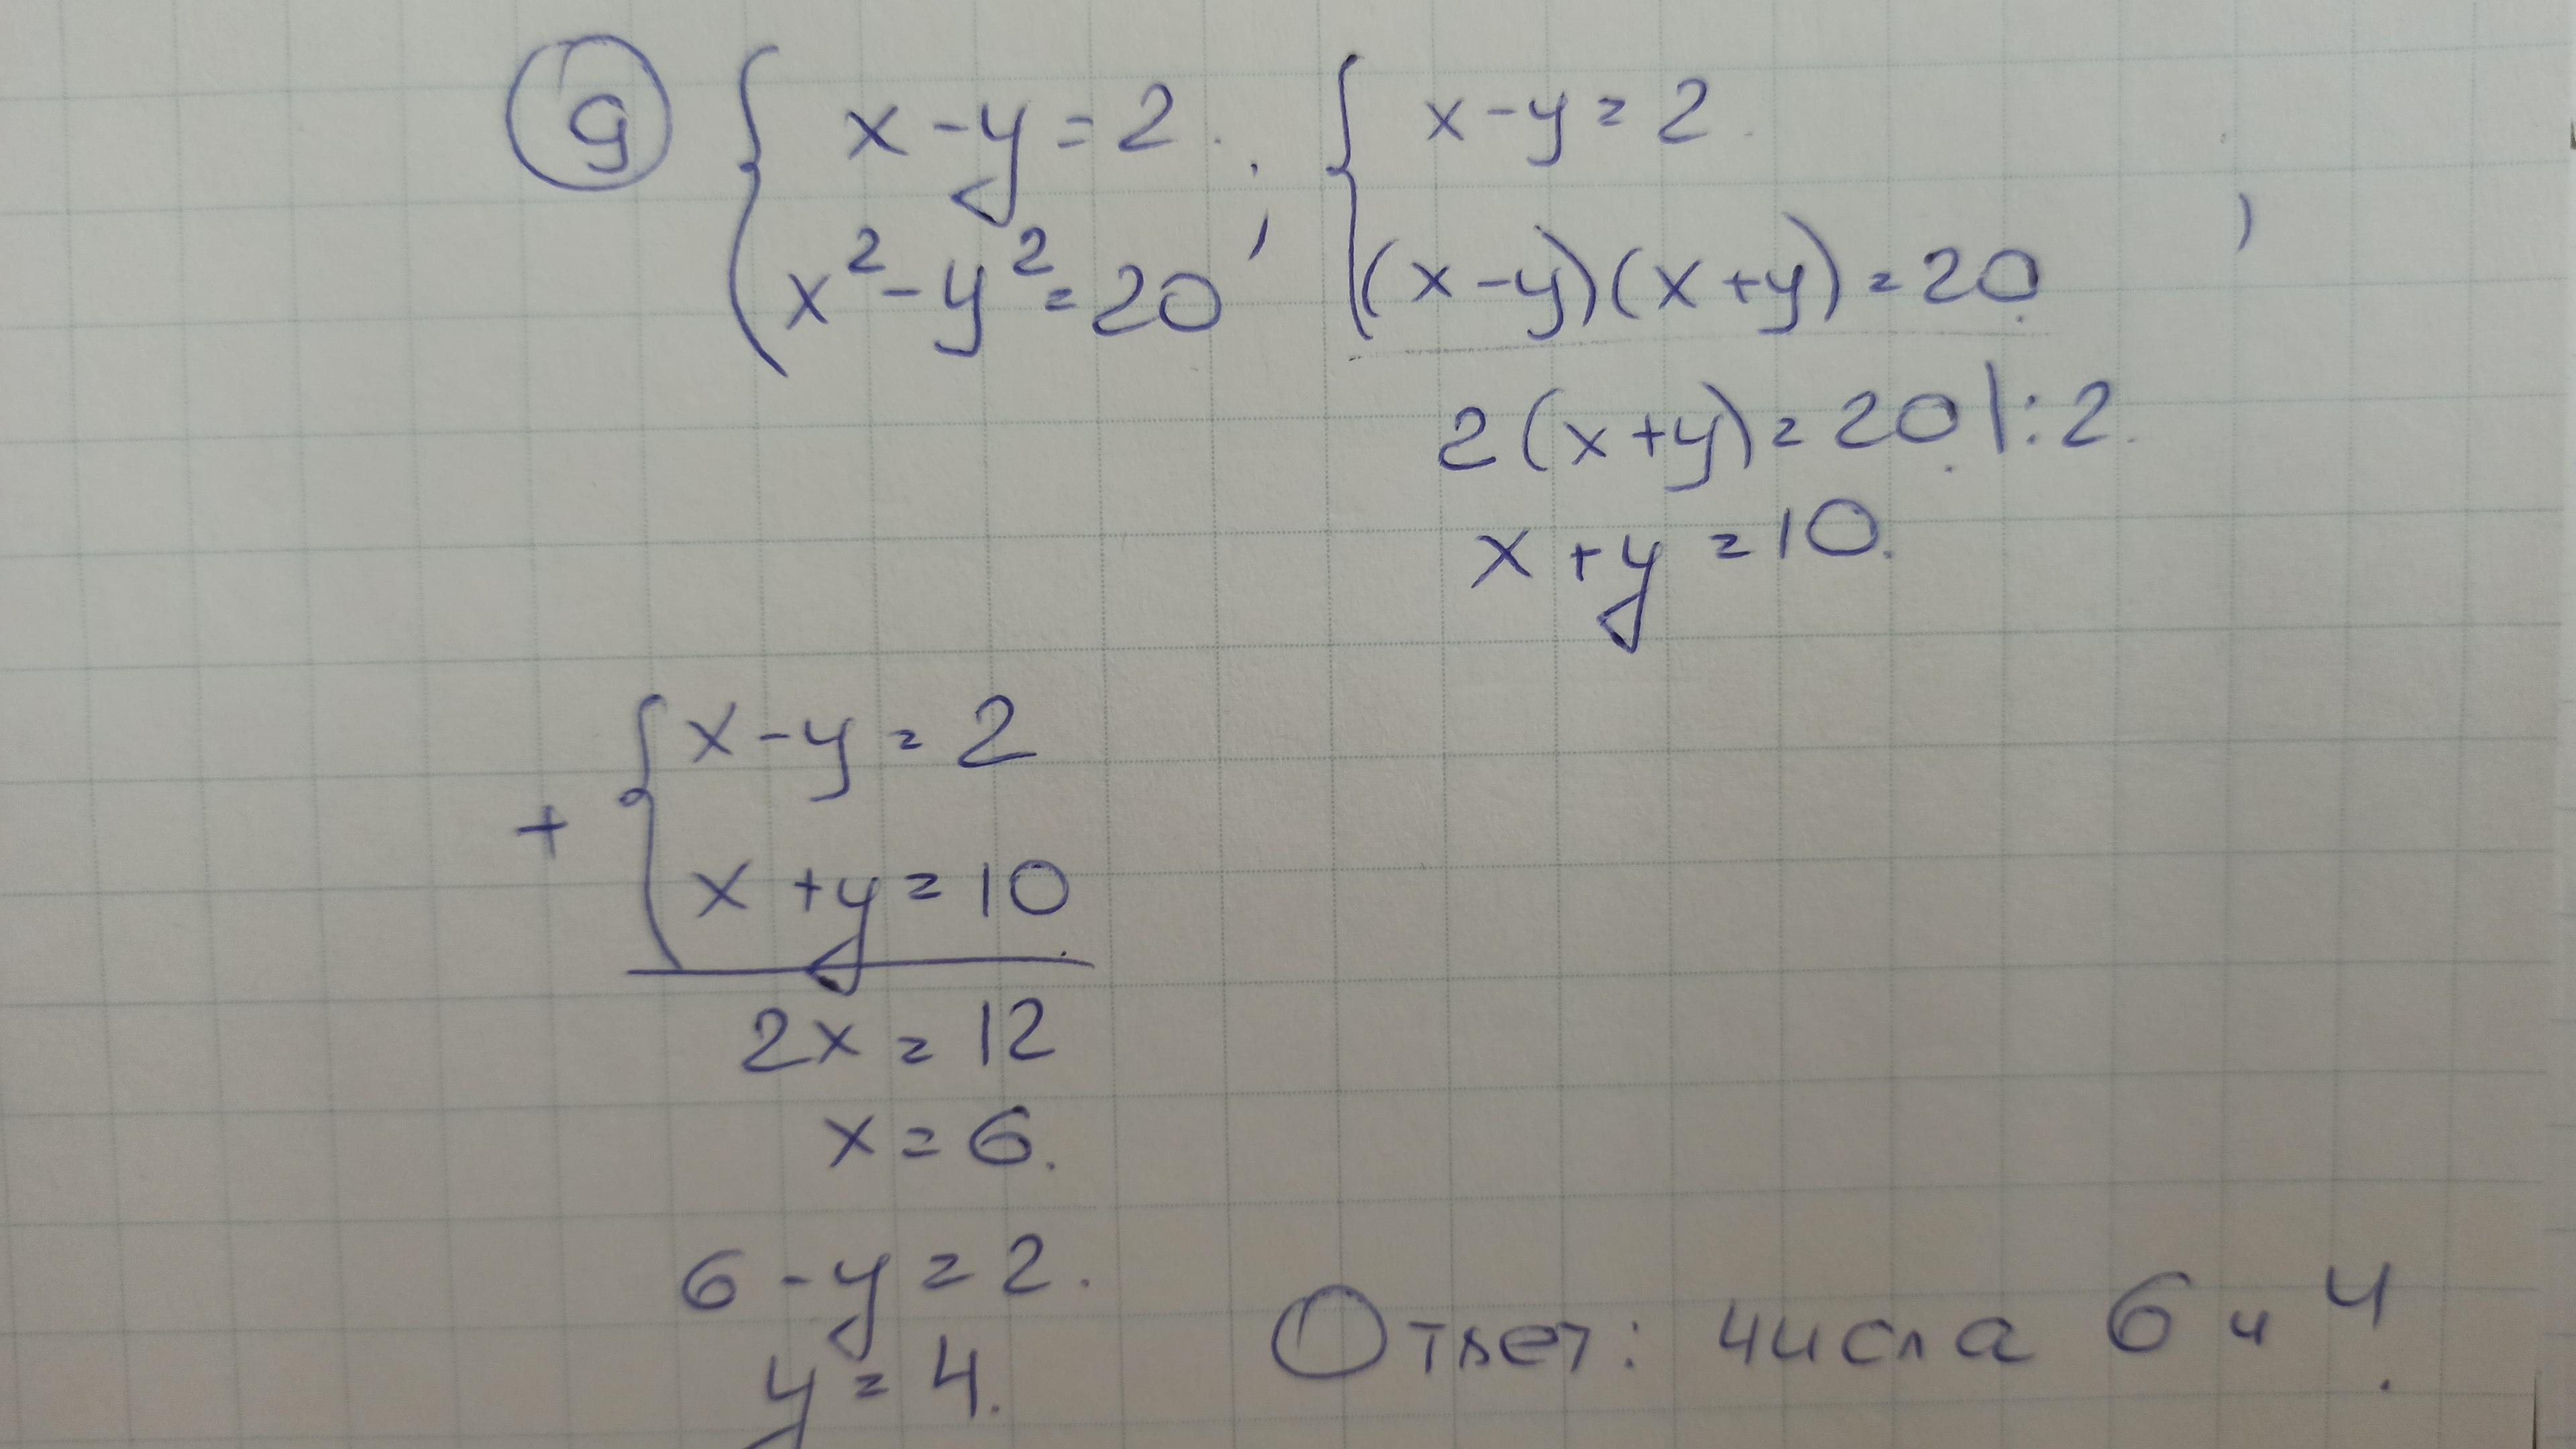 9 { x - y = 2 . ; { x - y = 2 .
x² - y² = 20 (x - y)(x + y) = 20. ,
2(x + y) = 20. |: 2.
x + y = 10.
{ x - y = 2
+
x + y = 10
2x = 12
x = 6.
6 - y = 2.
y = 4.
Ответ: числа 6 и 4.